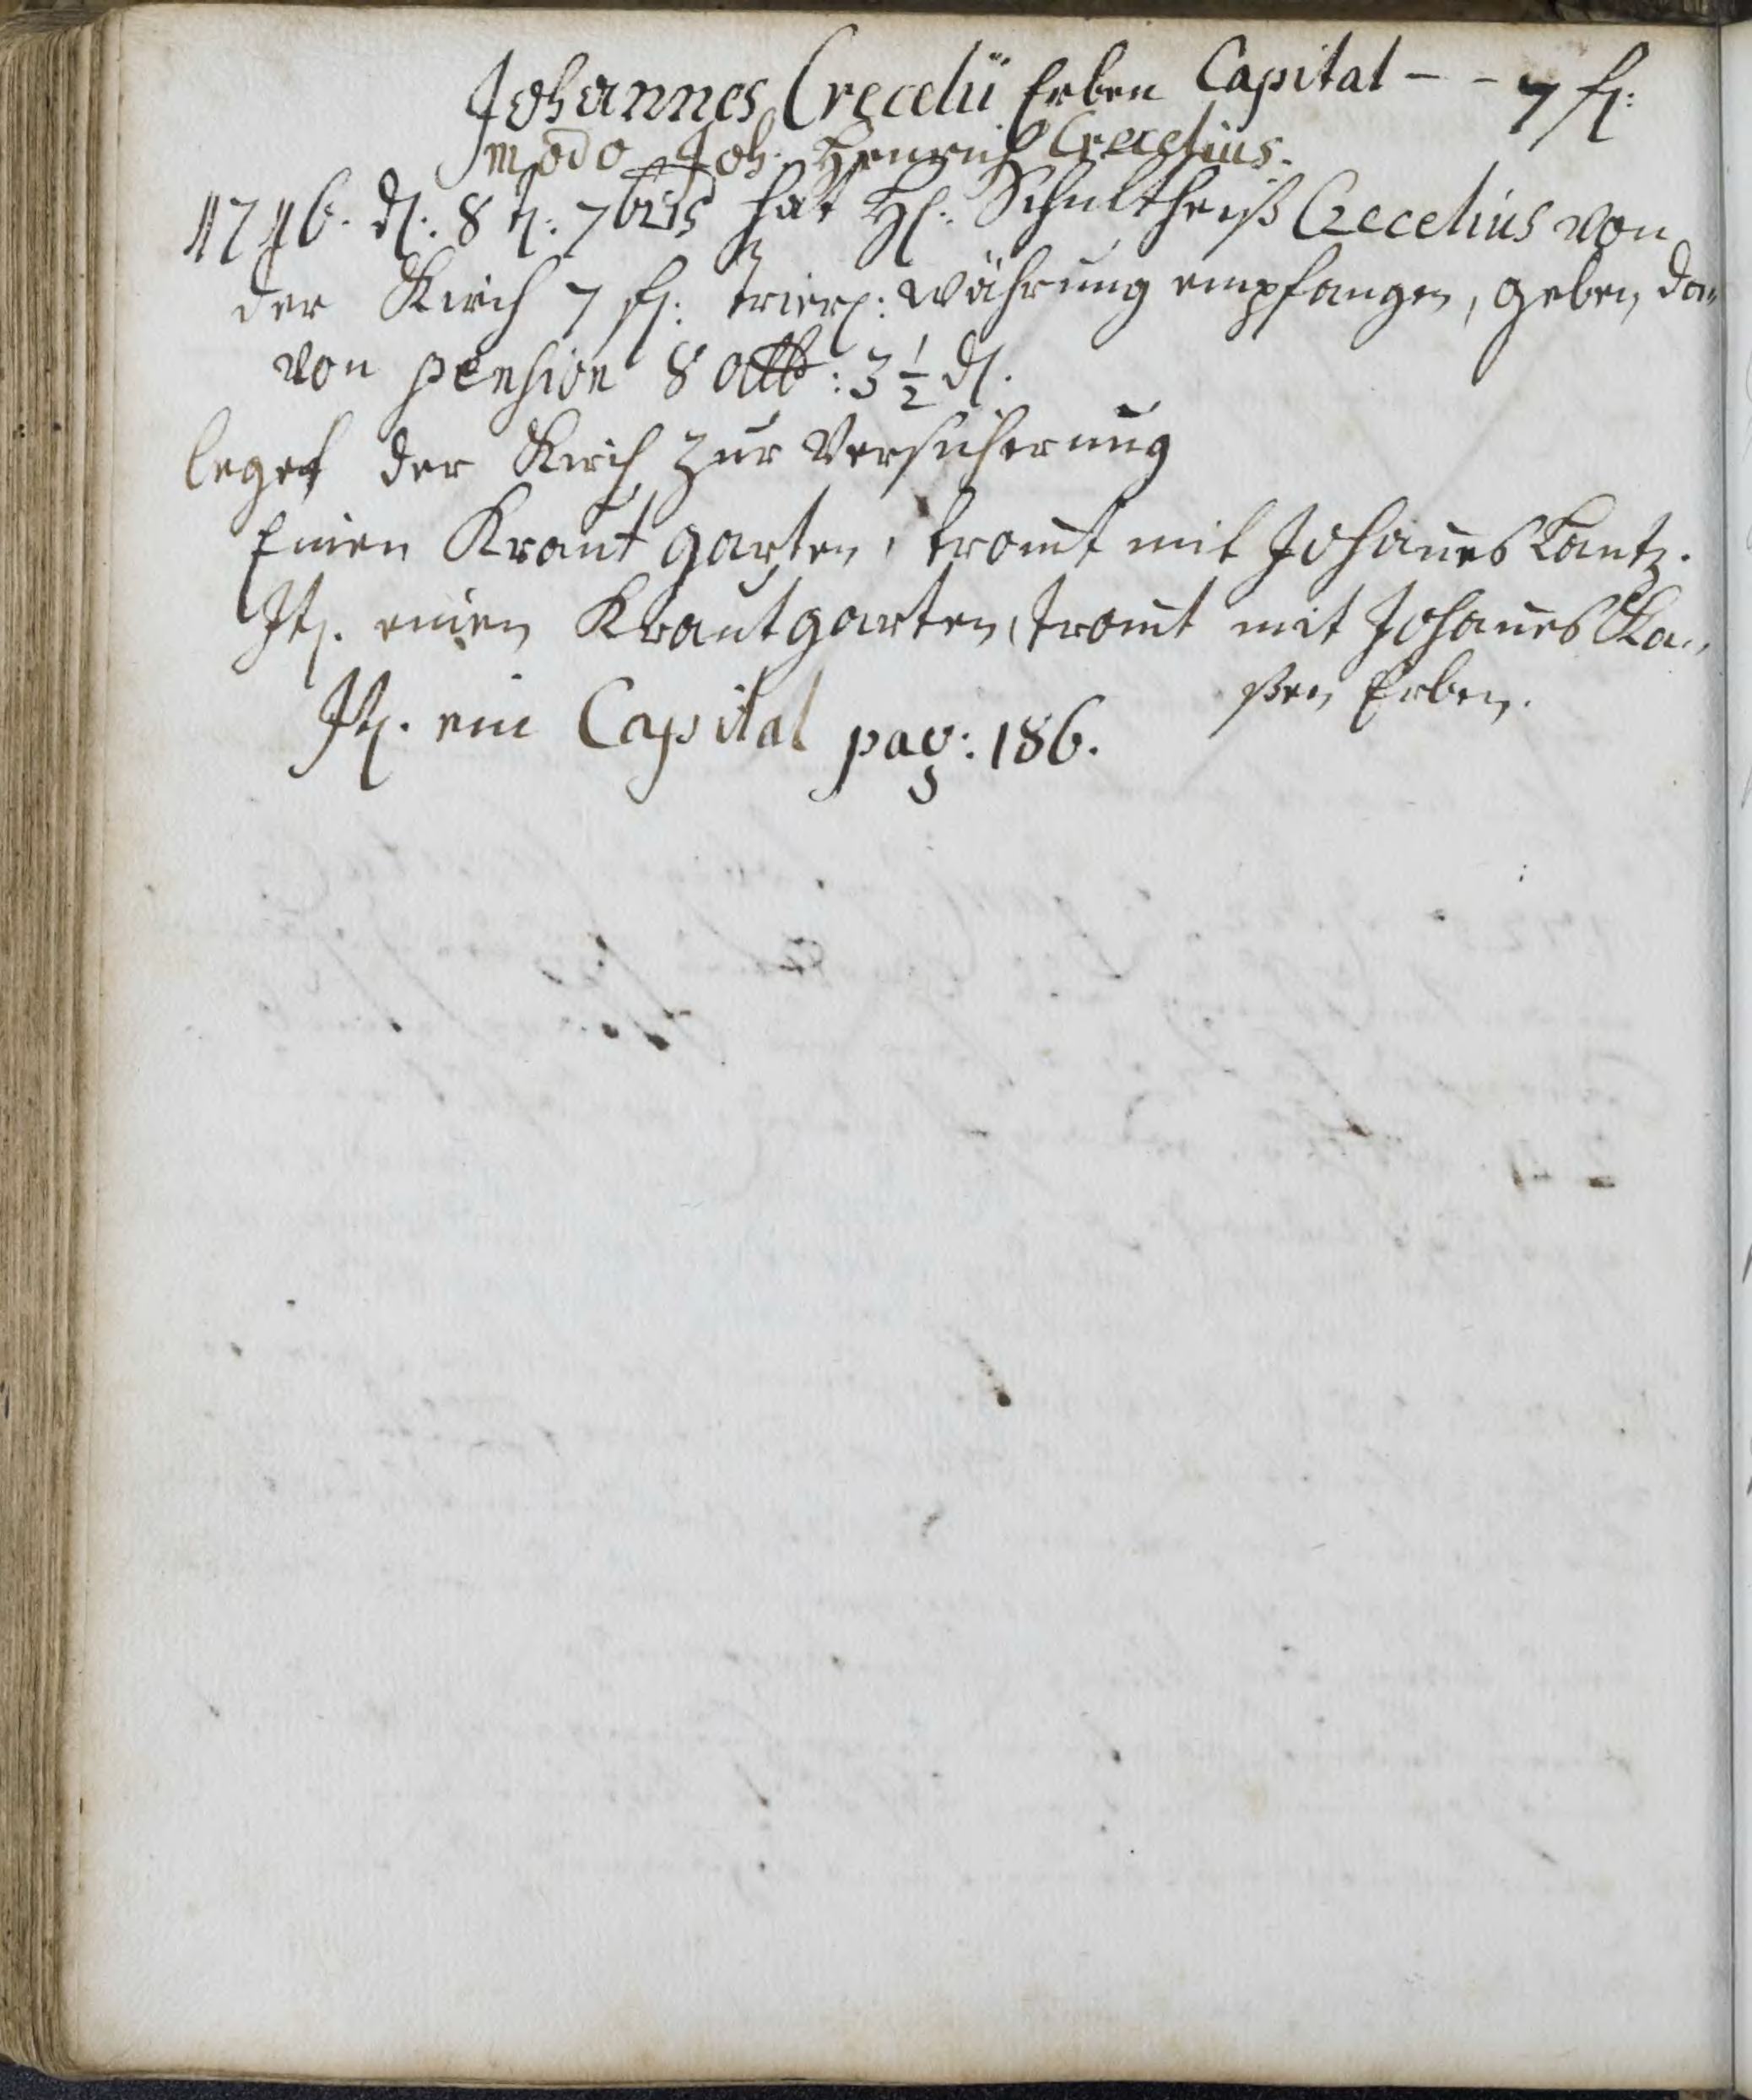 Johannes Crecelii Erben Capital - - 7 fl:
modo Joh. Henrich Crecelius.
1716. d: 8 t: 7bris hat H: Schultheiß Crecelius von
der Kirch 7 fl: trier: währung empfangen, geben da„
von pension 8 alb: 3 1/2 d.
leget der Kirch zur Versicherung
Einen Kraut garten, kromt mit Johanes Lantz.
It. einen Krautgarten, kromt mit Johanes Ka„
ßen Erben.
It. ein Capital pag: 186.